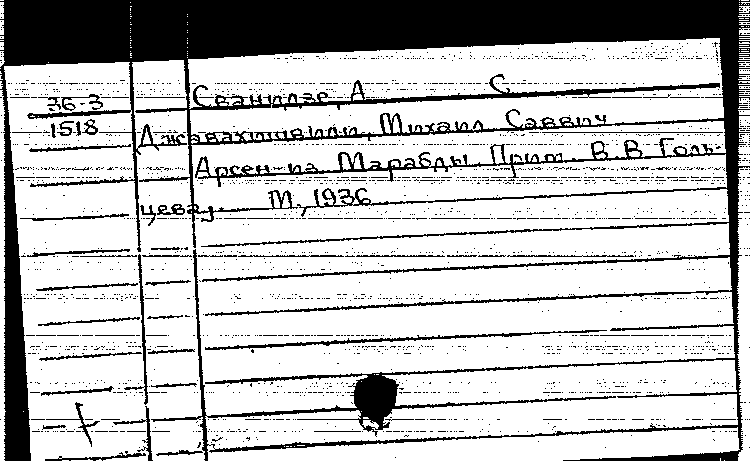 36-3
Сванидзе, А С.
1518
Джавахишвили, Михаил Саввич
Арсен из Марабды. Прим. В. В. Голь-
цева]. М., 1936